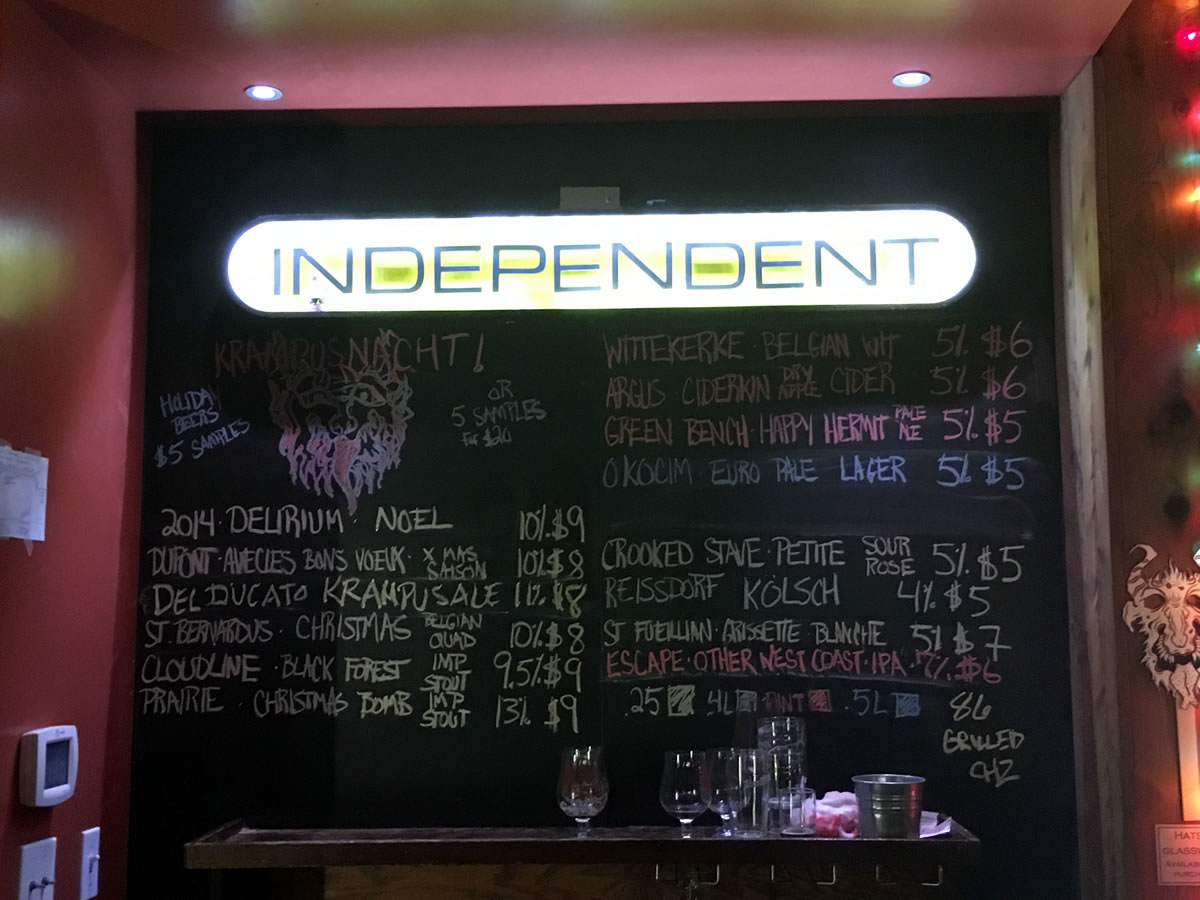 INDEPENDENT
KRAMPUSNACHT!
HOLIDAY
BEERS
$5 SAMPLES
OR
5 SAMPLES
For $20
2014 · DELIRIUM · NOEL 10% $9
DUPONT · AVECLES BONS VOEUX · X MAS SAISON 10% $8
DEL DUCATO KRAMPUSALE 11% $8
ST. BERNARDUS · CHRISTMAS BELGIAN QUAD 10% $8
CLOUDLINE · BLACK FOREST IMP STOUT 9.5% $9
PRAIRIE · CHRISTMAS BOMB IMP STOUT 13% $9
WITTEKERKE · BELGIAN WIT 5% $6
ARGUS · CIDERKIN DRY APPLE CIDER 5% $6
GREEN BENCH · HAPPY HERMIT PALE 5% $5
OKOCIM EURO PALE LAGER 5% $5
CROOKED STAVE · PETITE SOUR ROSE 5% $5
REISSDORF KÖLSCH 4% $5
ST FUEILLIAN · GRISSETTE BLANCHE 5% $7
ESCAPE · OTHER WEST COAST · IPA · 7% $6
.25 .4L PINT .5L
86
GRILLED
CHZ
HATS
GLASSW
AVAILAB
PURCH